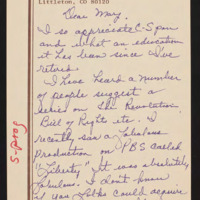 Littleton, CO 80120
Dear Mary,
I so appreciate C-Span
and what an education
it has been since I've
retired.
I have heard a number
of people suggest a
series on The Revolution
Bill of Rights etc. I
recently saw a fabulous
production on PBS called
"Liberty." It was absolutely
fabulous. I don't know
if you folks could acquire
S-prog